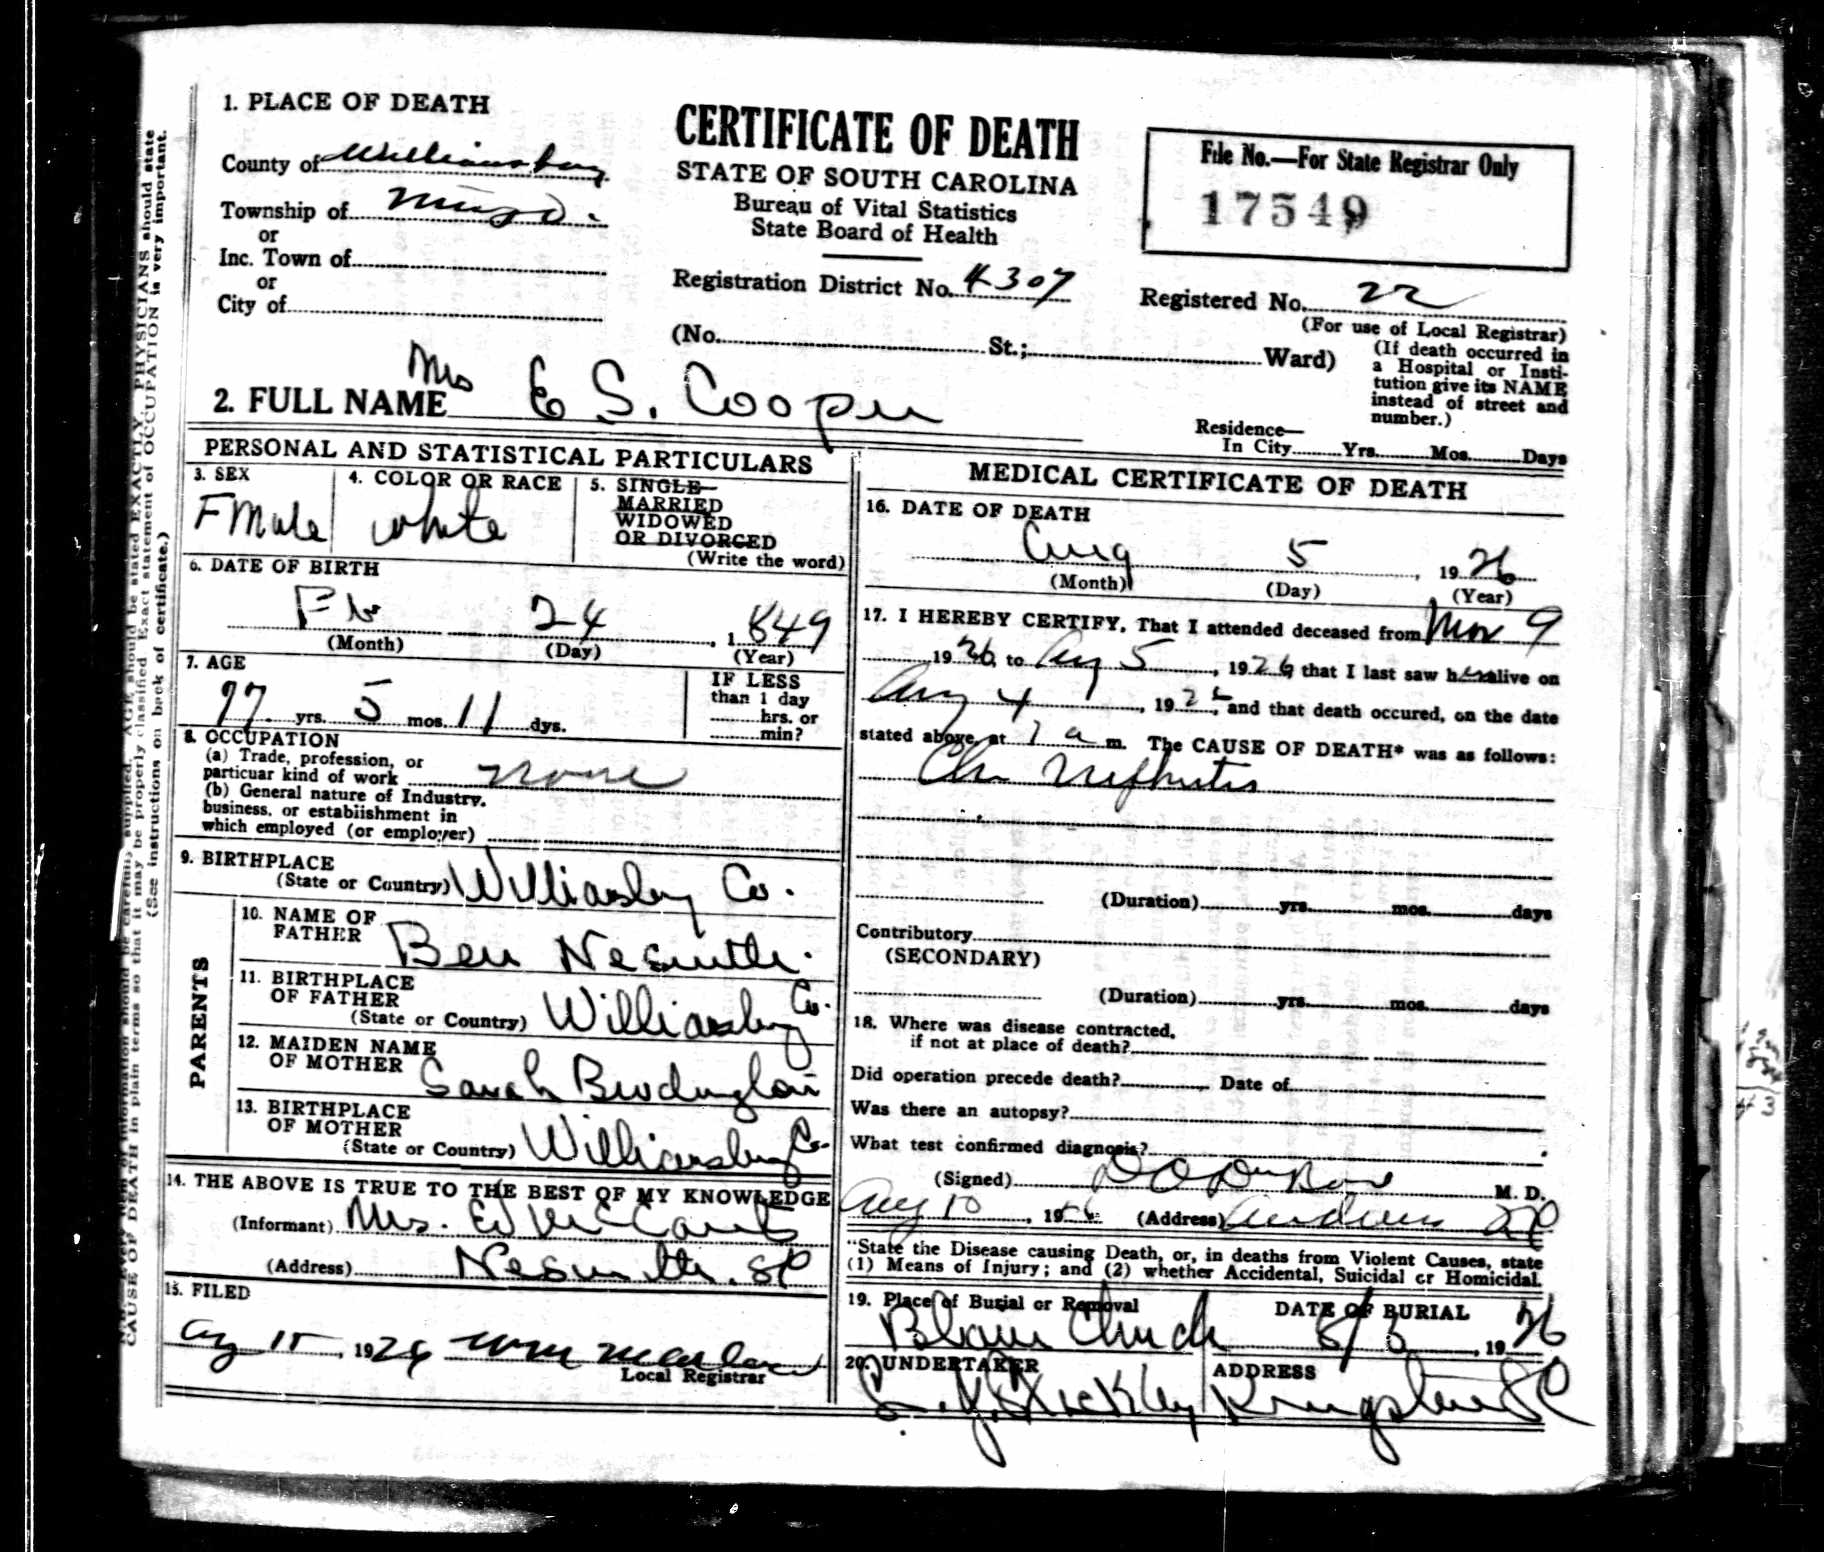 1. PLACE OF DEATH
County of Williamsburg
Township of
or
Inc. Town of
or
City of
CERTIFICATE OF DEATH
STATE OF SOUTH CAROLINA
Bureau of Vital Statistics
State Board of Health
Registration District No. 4307
File No.—For State Registrar Only
17549
Registered No. 22
(For use of Local Registrar)
(No. St.; Ward)
(If death occurred in
a Hospital or Insti-
tution give its NAME
instead of street and
number.)
2. FULL NAME Mrs E S. Cooper
Residence—
In City Yrs. Mos. Days
PERSONAL AND STATISTICAL PARTICULARS
3. SEX
FMale
4. COLOR OR RACE
white
5. SINGLE
MARRIED
WIDOWED
OR DIVORCED
(Write the word)
6. DATE OF BIRTH
Fb 24, 1849
(Month) (Day) (Year)
7. AGE
77 yrs. 5 mos. 11 dys.
IF LESS
than 1 day
hrs. or
min?
8. OCCUPATION
(a) Trade, profession, or
particuar kind of work none
(b) General nature of Industry,
business, or establishment in
which employed (or employer)
9. BIRTHPLACE
(State or Country) Williamsburg Co.
PARENTS
10. NAME OF
FATHER Ben Nesmith.
11. BIRTHPLACE
OF FATHER
(State or Country) Williamsburg Co.
12. MAIDEN NAME
OF MOTHER Sarah
13. BIRTHPLACE
OF MOTHER
(State or Country) Williamsburg Co.
14. THE ABOVE IS TRUE TO THE BEST OF MY KNOWLEDGE
(Informant) Mrs. Ed McCants
(Address) Nesmith, SC
15. FILED
Aug 15, 1926
Local Registrar
MEDICAL CERTIFICATE OF DEATH
16. DATE OF DEATH
Aug 5, 1926
(Month) (Day) (Year)
17. I HEREBY CERTIFY, That I attended deceased from 9
1926, to Aug 5, 1926, that I last saw her alive on
Aug 4, 1926, and that death occured, on the date
stated above, at a m. The CAUSE OF DEATH* was as follows:
Chr Nephritis
(Duration) yrs. mos. days
Contributory
(SECONDARY)
(Duration) yrs. mos. days
18. Where was disease contracted,
if not at place of death?
Did operation precede death? Date of
Was there an autopsy?
What test confirmed diagnosis?
(Signed) M. D.
Aug 10, 1926 (Address) Andrews SC
"State the Disease causing Death, or, in deaths from Violent Causes, state
(1) Means of Injury; and (2) whether Accidental, Suicidal or Homicidal.
19. Place of Burial or Removal
Church
DATE OF BURIAL
8/6, 1926
20. UNDERTAKER
Stackley
ADDRESS
Kingstree SC
CAUSE OF DEATH in plain terms so that it may be properly classified. Exact statement of OCCUPATION is very important.
(See instructions on back of certificate.)